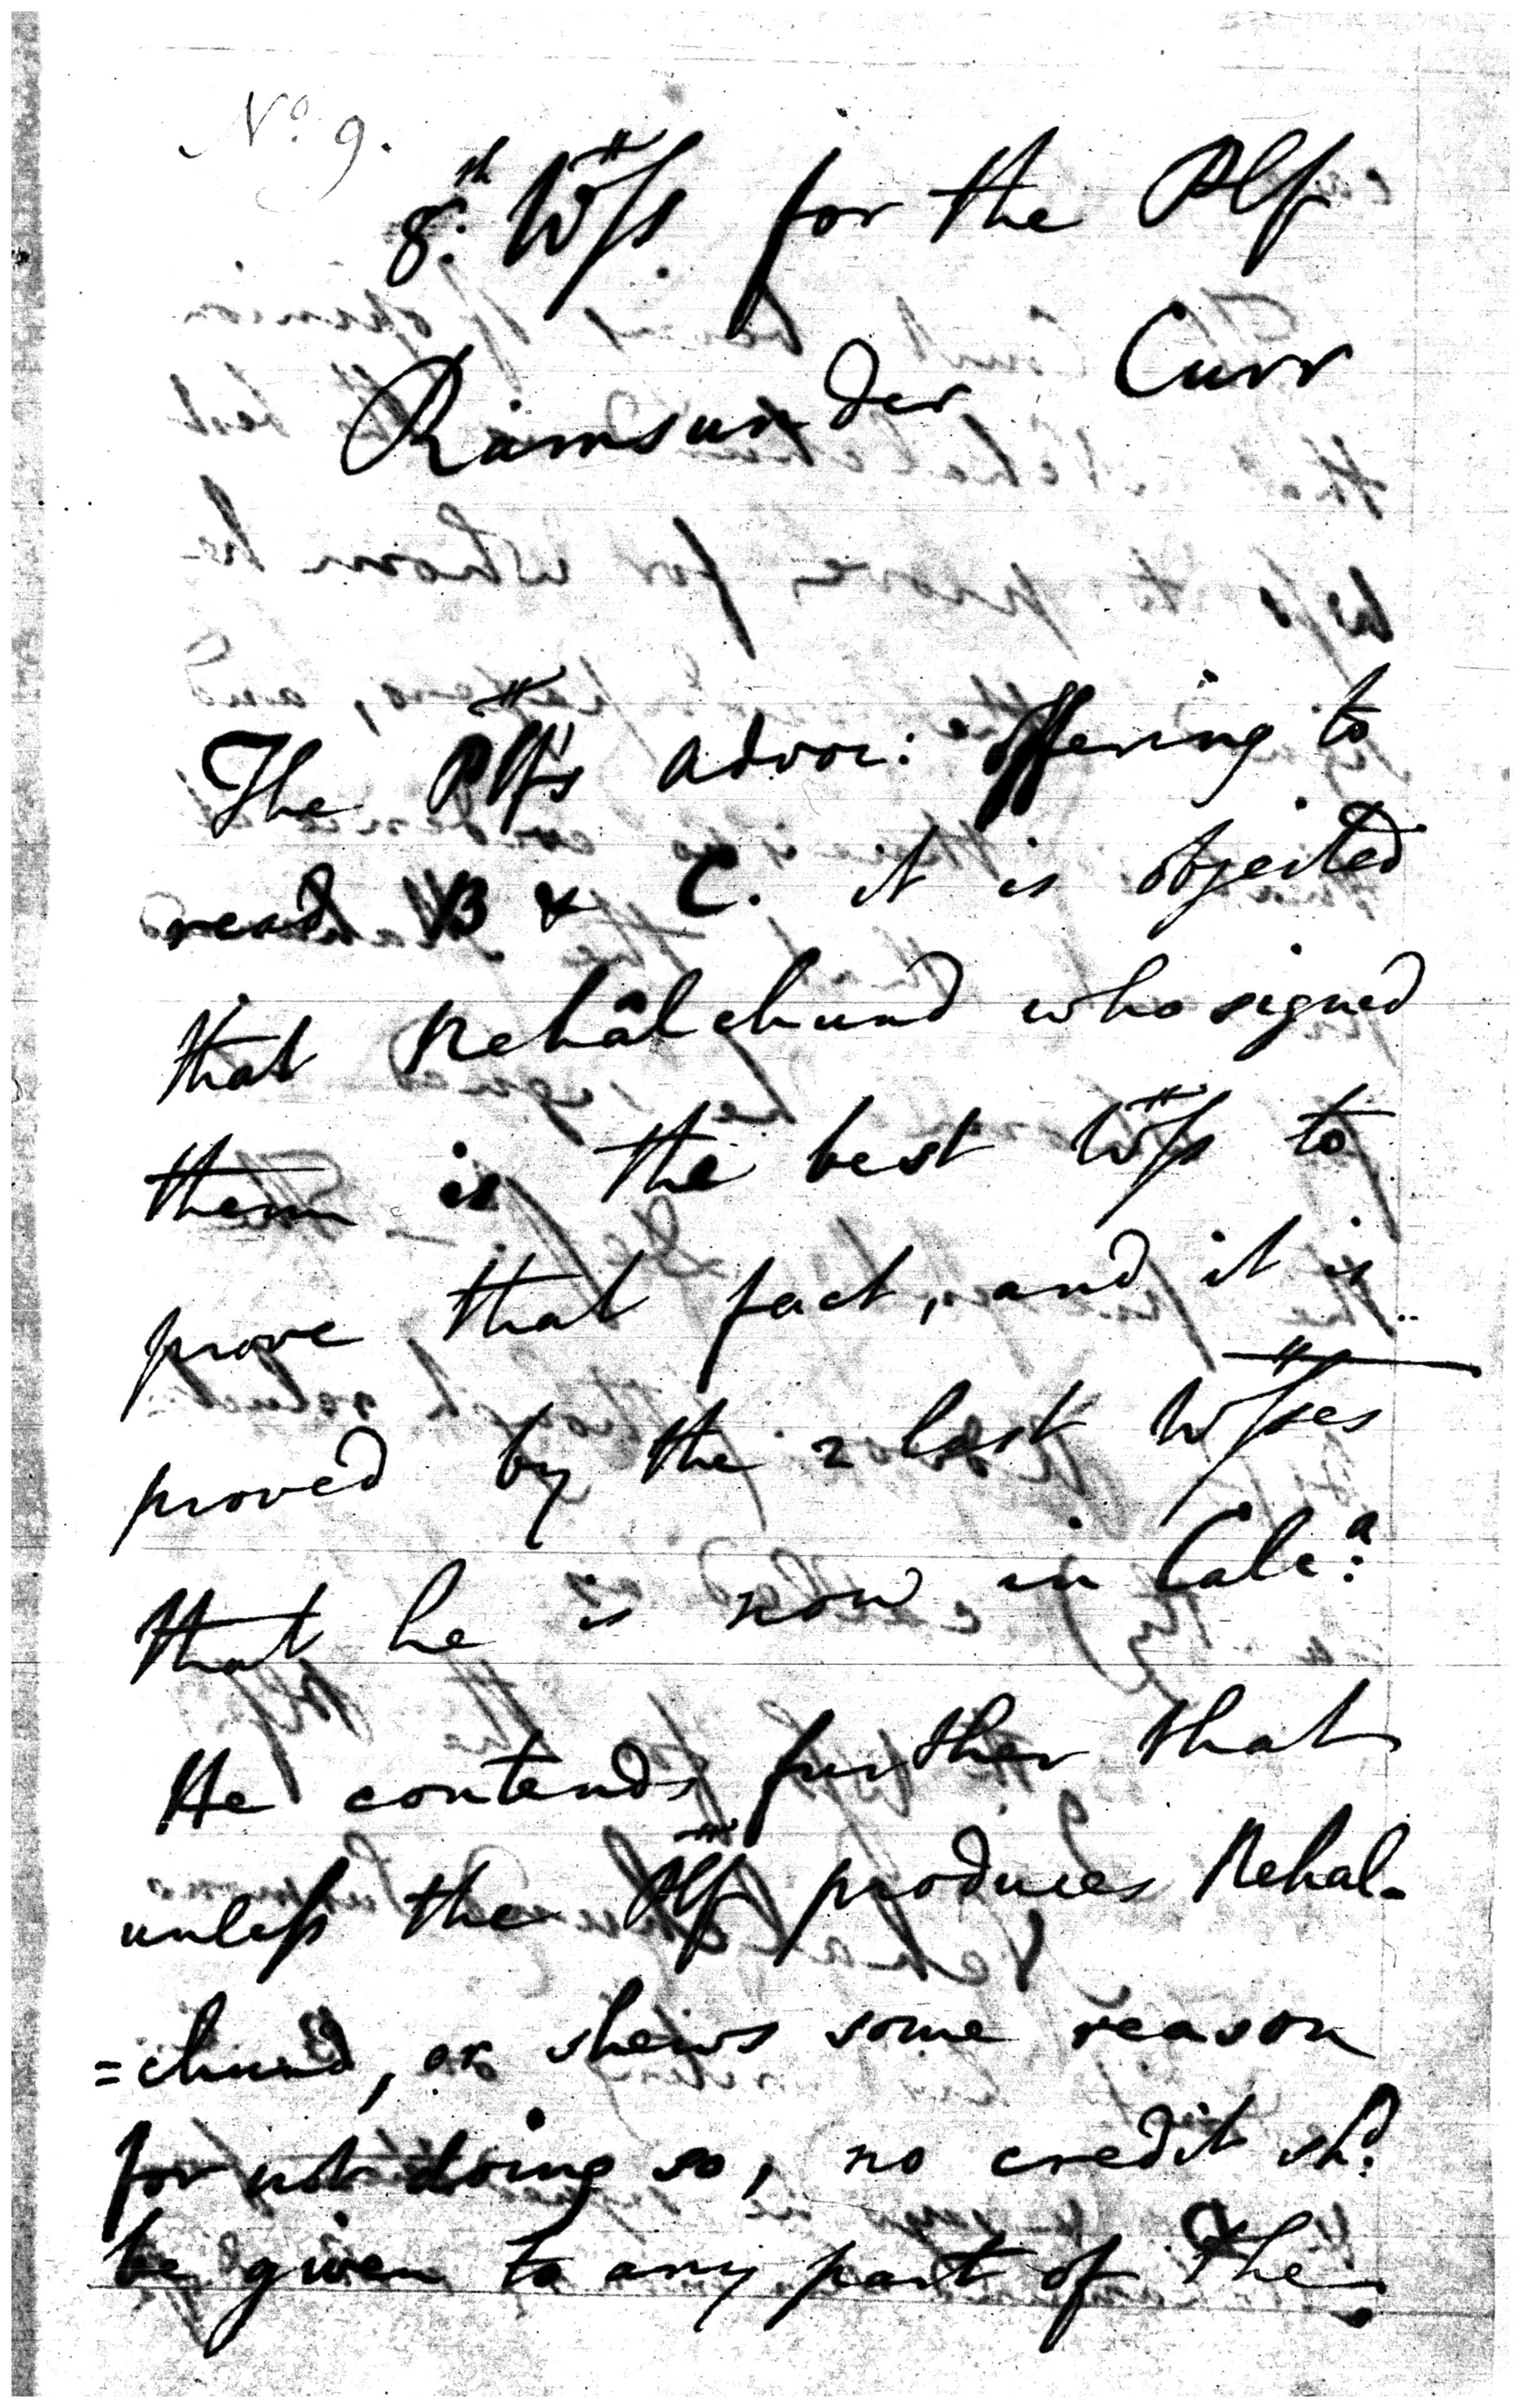 No. 9.
8th. Wss. for the Plf
Ramsunder Curr
The Plf's advoc: offering to
read B & C. it is objected
that Nehâlchund who signed
them is the best Wss to
prove that fact, and it is
proved by the 2 last Wsses
that he is now in Calc:a
He contends further that
unless the Plf produces Nehal-
=chund, or shews some reason
for not doing so, no credit shd.
be given to any part of the